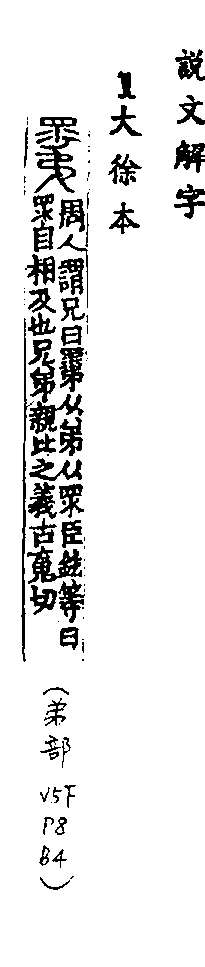 説文解字
1大徐本
周人謂兄曰𥊽从弟从眔臣鉉等曰
眔自相及也兄弟親比之義古䰟切
(弟部
V5F
P8
B4)